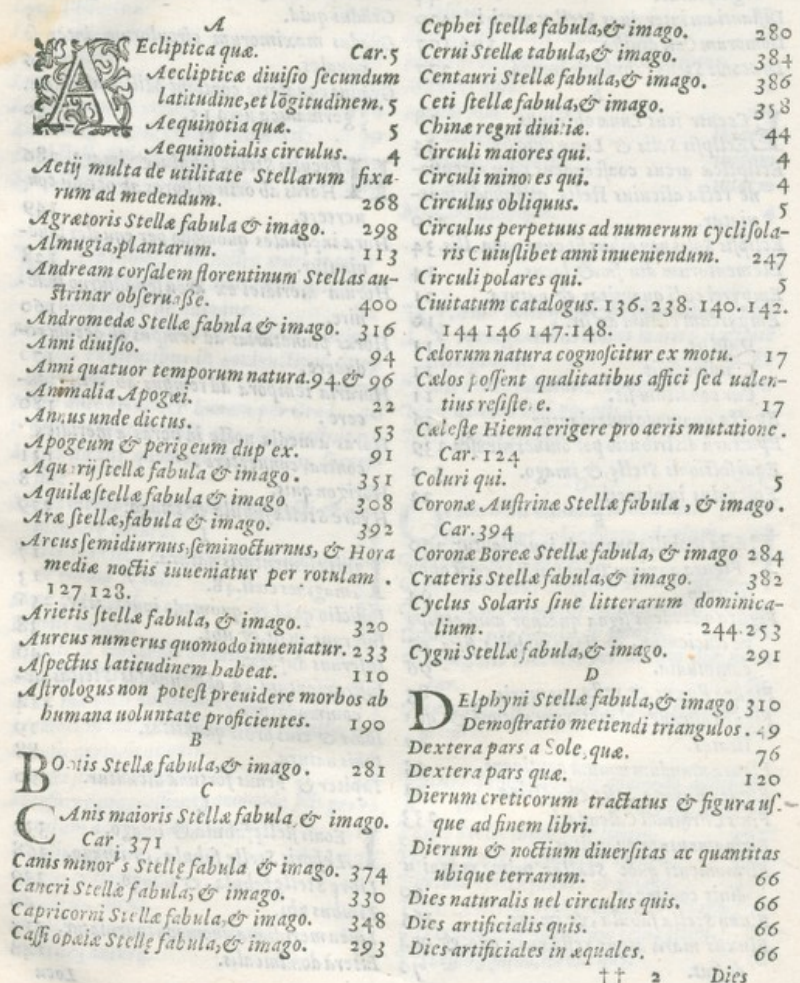 A
AEcliptica quæ. Car. 5
Aeclipticæ diuiſio ſecundum
latitudine, et lōgitudinem. 5
Aequinotia quæ. 5
Aequinotialis circulus. 4
Aetij multa de utilitate Stellarum fixa-
rum ad medendum. 268
Agrætoris Stellæ fabula & imago. 298
Almugia, plantarum. 113
Andream corſalem florentinum Stellas au-
ſtrinar obſeruaſſe. 400
Andromedæ Stellæ fabnla & imago. 316
Anni diuiſio. 94
Anni quatuor temporum natura. 94. & 96
Animalia Apogæi. 22
Annus unde dictus. 53
Apogeum & perigeum dup'ex. 91
Aquarij ſtellæ fabula & imago. 351
Aquilæ ſtellæ fabula & imago 308
Aræ ſtellæ, fabula & imago. 392
Arcus ſemidiurnus, ſeminocturnus, & Hora
mediæ noctis iuueniatur per rotulam .
127 128.
Arietis ſtellæ fabula, & imago. 320
Aureus numerus quomodo inueniatur. 233
Aſpectus latitudinem habeat. 110
Aſtrologus non poteſt preuidere morbos ab
humana uoluntate proficientes. 190
B
BOotis Stellæ fabula, & imago. 281
C
CAnis maioris Stellæ fabula & imago.
Car. 371
Canis minor's Stellę fabula & imago. 374
Cancri Stellæ fabula, & imago. 330
Capricorni Stellæ fabula, & imago. 348
Caſſiopæiæ Stellę fabula, & imago. 293
Cephei ſtellæ fabula, & imago. 280
Cerui Stellæ tabula, & imago. 384
Centauri Stellæ fabula, & imago. 386
Ceti ſtellæ fabula, & imago. 358
Chinæ regni diuitiæ. 44
Circuli maiores qui. 4
Circuli minores qui. 4
Circulus obliquus. 5
Circulus perpetuus ad numerum cycli ſola-
ris Cuiuſlibet anni inueniendum. 247
Circuli polares qui. 5
Ciuitatum catalogus. 136. 238. 140. 142.
144 146 147. 148.
Cælorum natura cognoſcitur ex motu. 17
Cælos poſſent qualitatibus affici ſed ualen-
tius reſiſtere. 17
Cæleſte Hiema erigere pro aeris mutatione.
Car. 124
Coluri qui. 5
Coronæ Auſtrinæ Stellæ fabula, & imago.
Car. 394
Coronæ Boreæ Stellæ fabula, & imago 284
Crateris Stellæ fabula, & imago. 382
Cyclus Solaris ſiue litterarum dominica-
lium. 244. 253
Cygni Stellæ fabula, & imago. 291
D
DElphyni Stellæ fabula, & imago 310
Demoſtratio metiendi triangulos.
Dextera pars a Sole, quæ. 76
Dextera pars quæ. 120
Dierum creticorum tractatus & figura uſ.-
que ad finem libri.
Dierum & noctium diuerſitas ac quantitas
ubique terrarum. 66
Dies naturalis uel circulus quis. 66
Dies artificialis quis. 66
Dies artificiales in æquales. 66
†† 2 Dies